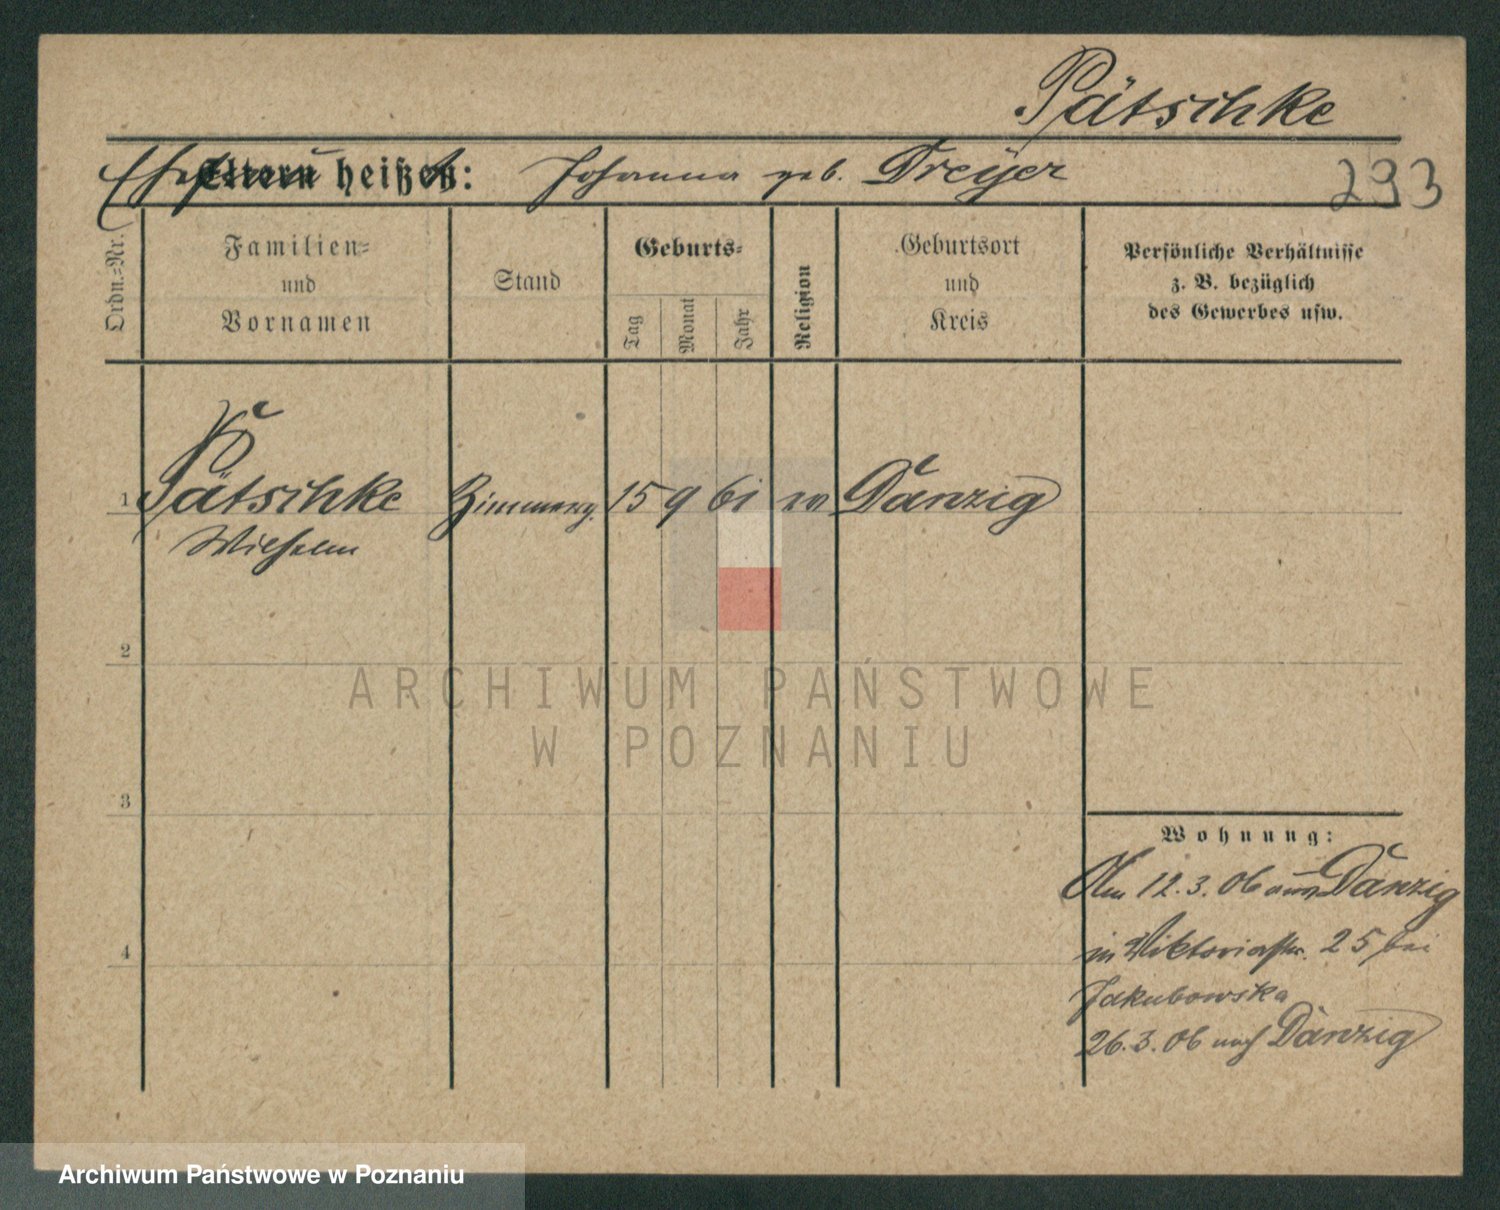 Pätschke
Ehefrau heißt: Johanna geb. Dreÿer
293
Ordn.=Nr.
Familien=
und
Vornamen
Stand
Geburts=
Tag
Monat
Jahr
Religion
Geburtsort
und
Kreis
Persönliche Verhältnisse
z. B. bezüglich
des Gewerbes usw.
1 Pätschke Zimmerg. 15 9 61 Danzig
Wilhelm
2
3
4
Wohnung:
Am 12.3.06 aus Danzig
in Viktoriastr. 25 bei
Jakubowska
26.3.06 nach Danzig
ARCHIWUM PAŃSTWOWE
W POZNANIU
Archiwum Państwowe w Poznaniu